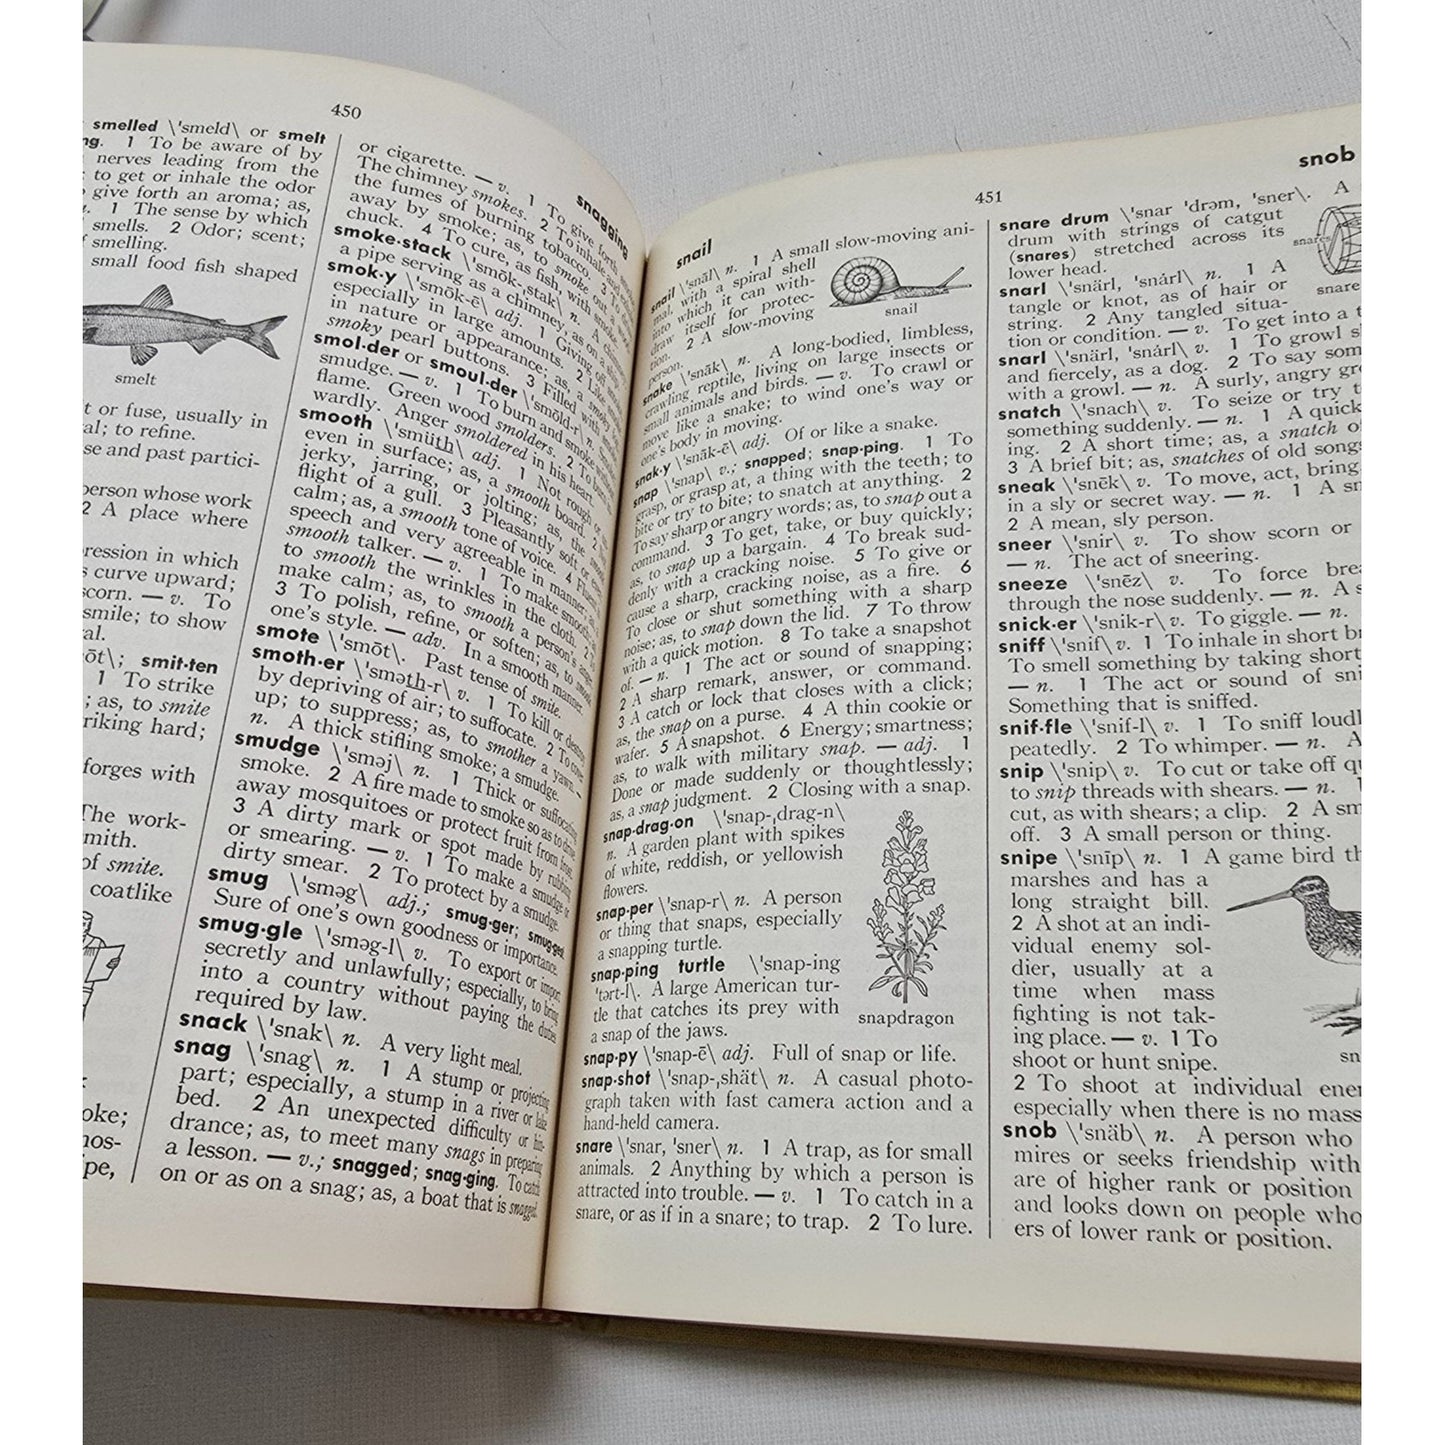 450
smelled \'smeld\ or smelt
ng. 1 To be aware of by
nerves leading from the
; to get or inhale the odor
give forth an aroma; as,
v. 1 The sense by which
smells. 2 Odor; scent;
f smelling.
small food fish shaped
smelt
t or fuse, usually in
al; to refine.
se and past partici-
person whose work
2 A place where
pression in which
s curve upward;
scorn. — v. To
smile; to show
ral.
ōt\; smit·ten
1 To strike
; as, to smite
riking hard;
forges with
The work-
mith.
of smite.
coatlike
oke;
nos-
ipe,
snagging
or cigarette. — v. 1 To give forth smoke; as,
The chimney smokes. 2 To inhale and
the fumes of burning tobacco. 3 To
away by smoke; as, to smoke out a
chuck. 4 To cure, as fish, with smoke
smoke·stack \'smōk-ˌstak\ n. A chim
a pipe serving as a chimney, as on a ship.
smok·y \'smōk-ē\ adj. 1 Giving off smoke
especially in large amounts. 2 Like
in nature or appearance; as, a smoky
smoky pearl buttons. 3 Filled with
smol·der or smoul·der \'smōld-r\ n.
smudge. — v. 1 To burn and smoke without
flame. Green wood smolders. 2 To burn
wardly. Anger smoldered in his heart.
smooth \'smüth\ adj. 1 Not rough or
even in surface; as, a smooth board. 2 Not
jerky, jarring, or jolting; as, the smooth
flight of a gull. 3 Pleasantly soft or even
calm; as, a smooth tone of voice. 4 Fluent in
speech and very agreeable in manner; as, a
smooth talker. — v. 1 To make smooth;
to smooth the wrinkles in the cloth. 2 To
make calm; as, to smooth a person's anger.
3 To polish, refine, or soften; as, to smooth
one's style. — adv. In a smooth manner.
smote \'smōt\. Past tense of smile.
smoth·er \'sməth-r\ v. 1 To kill or destroy
by depriving of air; to suffocate. 2 To cover
up; to suppress; as, to smother a yawn. —
n. A thick stifling smoke; a smudge.
smudge \'sməj\ n. 1 Thick or suffocating
smoke. 2 A fire made to smoke so as to drive
away mosquitoes or protect fruit from frost.
3 A dirty mark or spot made by rubbing
or smearing. — v. 1 To make a smudge or
dirty smear. 2 To protect by a smudge.
smug \'sməg\ adj.; smug·ger; smug·gest
Sure of one's own goodness or importance.
smug·gle \'sməg-l\ v. To export or import
secretly and unlawfully; especially, to bring
into a country without paying the duties
required by law.
snack \'snak\ n. A very light meal.
snag \'snag\ n. 1 A stump or projecting
part; especially, a stump in a river or lake
bed. 2 An unexpected difficulty or hin-
drance; as, to meet many snags in preparing
a lesson. — v.; snagged; snag·ging. To catch
on or as on a snag; as, a boat that is snagged.
451
snail
snail \'snāl\ n. 1 A small slow-moving ani-
mal, with a spiral shell
into which it can with-
draw itself for protec-
tion. 2 A slow-moving
person.
snail
snake \'snāk\ n. A long-bodied, limbless,
crawling reptile, living on large insects or
small animals and birds. — v. To crawl or
move like a snake; to wind one's way or
one's body in moving.
snak·y \'snāk-ē\ adj. Of or like a snake.
snap \'snap\ v.; snapped; snap·ping. 1 To
grasp, or grasp at, a thing with the teeth; to
bite or try to bite; to snatch at anything. 2
To say sharp or angry words; as, to snap out a
command. 3 To get, take, or buy quickly;
as, to snap up a bargain. 4 To break sud-
denly with a cracking noise. 5 To give or
cause a sharp, cracking noise, as a fire. 6
To close or shut something with a sharp
noise; as, to snap down the lid. 7 To throw
with a quick motion. 8 To take a snapshot
of. — n. 1 The act or sound of snapping;
2 A sharp remark, answer, or command.
3 A catch or lock that closes with a click;
as, the snap on a purse. 4 A thin cookie or
wafer. 5 A snapshot. 6 Energy; smartness;
as, to walk with military snap. — adj. 1
Done or made suddenly or thoughtlessly;
as, a snap judgment. 2 Closing with a snap.
snap·drag·on \'snap-ˌdrag-n\
n. A garden plant with spikes
of white, reddish, or yellowish
flowers.
snap·per \'snap-r\ n. A person
or thing that snaps, especially
a snapping turtle.
snap·ping turtle \'snap-ing
'tərt-l\. A large American tur-
tle that catches its prey with
a snap of the jaws.
snapdragon
snap·py \'snap-ē\ adj. Full of snap or life.
snap·shot \'snap-ˌshät\ n. A casual photo-
graph taken with fast camera action and a
hand-held camera.
snare \'snar, 'sner\ n. 1 A trap, as for small
animals. 2 Anything by which a person is
attracted into trouble. — v. 1 To catch in a
snare, or as if in a snare; to trap. 2 To lure.
snob
snare drum \'snar 'drəm, 'sner\. A
drum with strings of catgut
(snares) stretched across its
lower head.
snares
snare
snarl \'snärl, 'snȧrl\ n. 1 A
tangle or knot, as of hair or
string. 2 Any tangled situa-
tion or condition. — v. To get into a t
snarl \'snärl, 'snȧrl\ v. 1 To growl s
and fiercely, as a dog. 2 To say som
with a growl. — n. A surly, angry gr
snatch \'snach\ v. To seize or try t
something suddenly. — n. 1 A quick
ing. 2 A short time; as, a snatch o
3 A brief bit; as, snatches of old songs
sneak \'snēk\ v. To move, act, bring
in a sly or secret way. — n. 1 A sn
2 A mean, sly person.
sneer \'snir\ v. To show scorn or
— n. The act of sneering.
sneeze \'snēz\ v. To force brea
through the nose suddenly. — n. A s
snick·er \'snik-r\ v. To giggle. — n.
sniff \'snif\ v. 1 To inhale in short br
To smell something by taking short
— n. 1 The act or sound of sni
Something that is sniffed.
snif·fle \'snif-l\ v. 1 To sniff loudl
peatedly. 2 To whimper. — n. A
snip \'snip\ v. To cut or take off q
to snip threads with shears. — n. 1
cut, as with shears; a clip. 2 A sm
off. 3 A small person or thing.
snipe \'snīp\ n. 1 A game bird th
marshes and has a
long straight bill.
2 A shot at an indi-
vidual enemy sol-
dier, usually at a
time when mass
fighting is not tak-
ing place. — v. 1 To
shoot or hunt snipe.
sn
2 To shoot at individual ener
especially when there is no mass
snob \'snäb\ n. A person who
mires or seeks friendship with
are of higher rank or position
and looks down on people who
ers of lower rank or position.